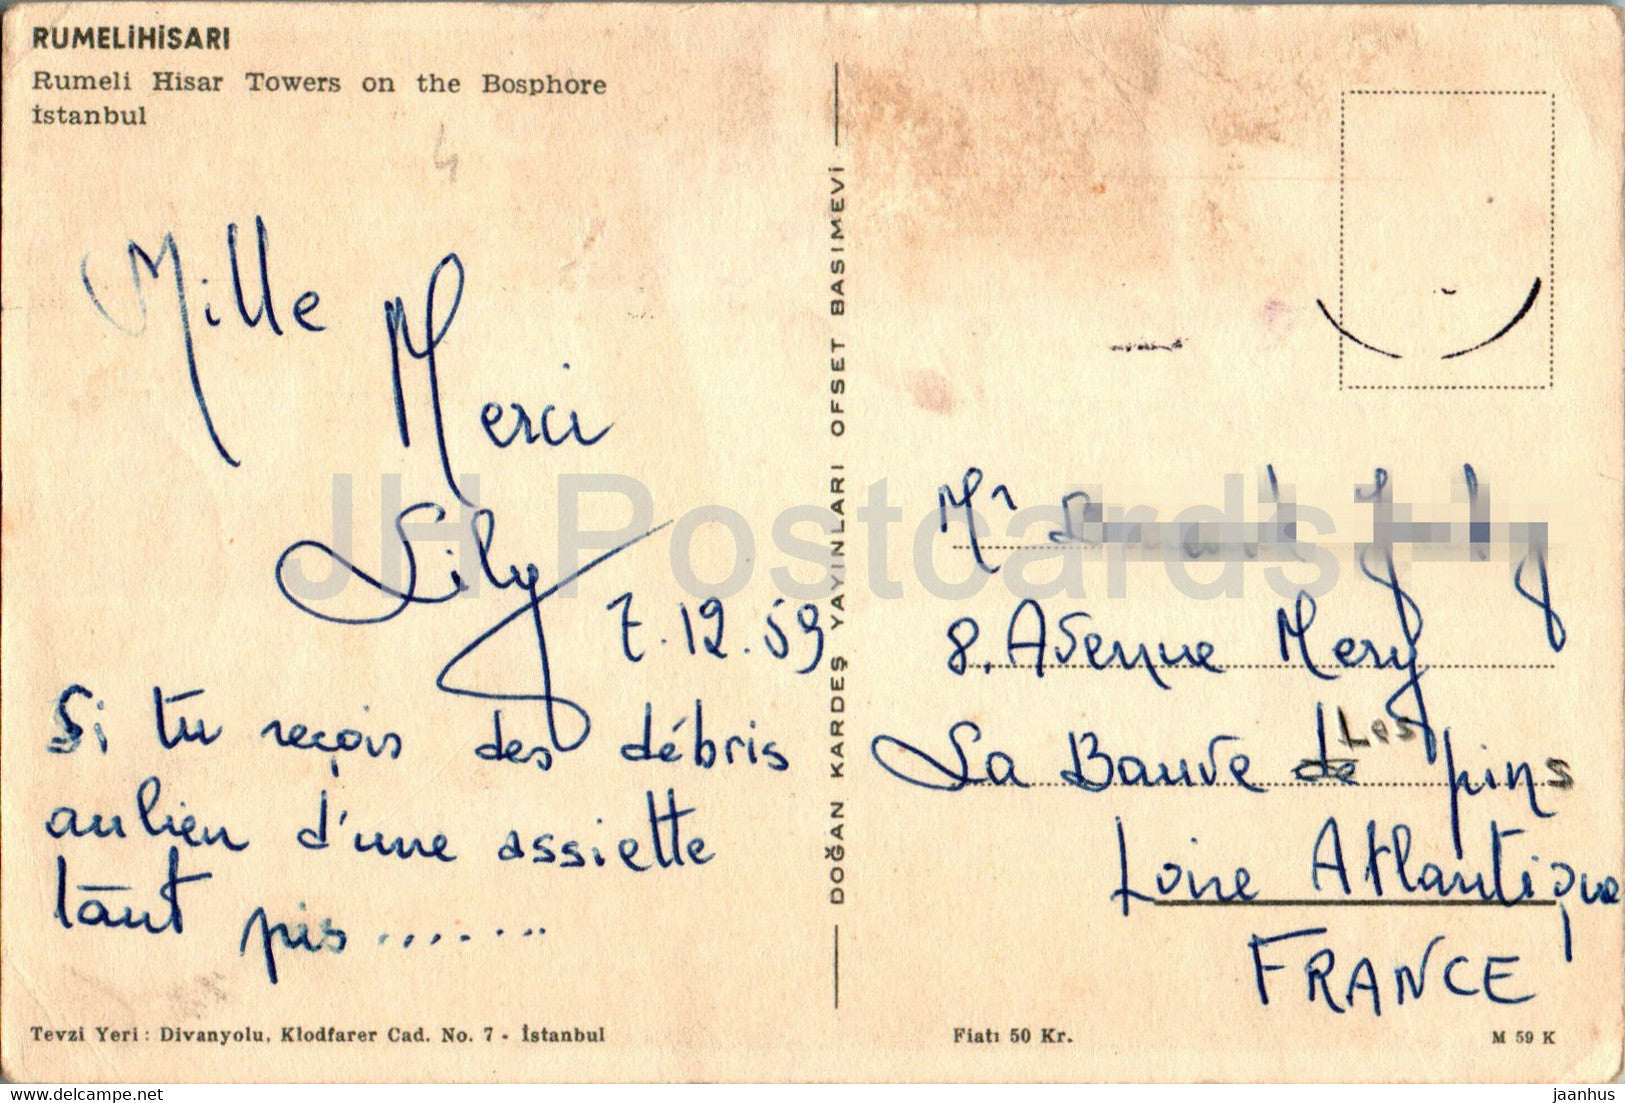 RUMELİHİSARI
Rumeli Hisar Towers on the Bosphore
İstanbul
Mille
Merci
Lily
7.12.59
Si tu reçois des débris
au lieu d'une assiette
tant pis.......
Tevzi Yeri : Divanyolu, Klodfarer Cad. No. 7 - İstanbul
DOĞAN KARDEŞ YAYINLARI OFSET BASIMEVİ
Mr
8, Avenue Mery
La Bauve de Les pins
Loire Atlantique
FRANCE
Fiatı 50 Kr.
M 59 K
JH Postcards
www.delcampe.net
jaanhus